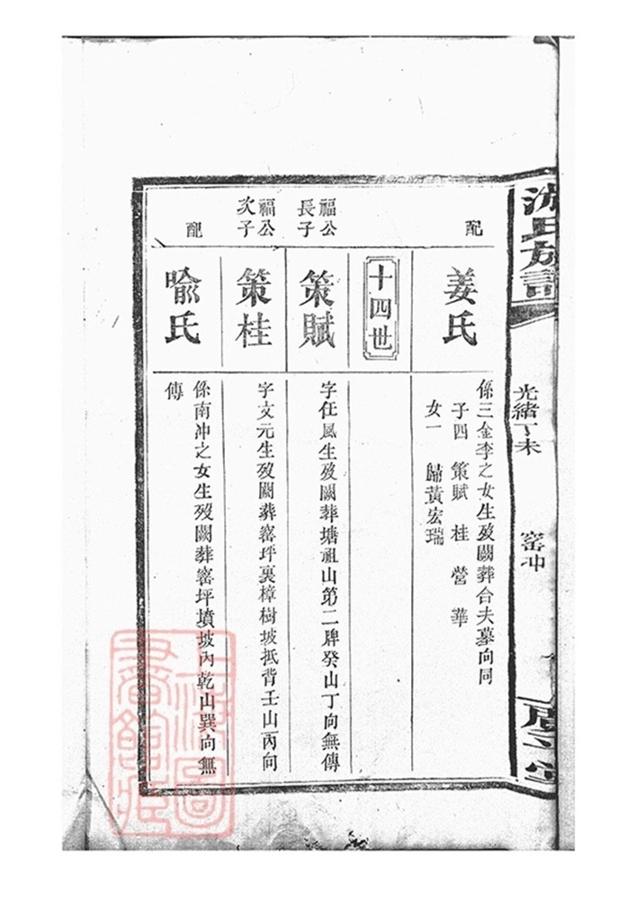 族譜
光緒丁未
窰冲
配
姜氏
係三金李之女生歿闕葬合夫墓向同
子四 策賦 桂 營 華
女一 歸黃宏瑞
十四世
福公
長子
策賦
字任風生歿闕葬塘祖山第二牌癸山丁向無傳
福公
次子
策桂
字文元生歿闕葬窰坪裏樟樹坡抵背壬山丙向
配
喻氏
係南冲之女生歿闕葬窰坪墳坡內乾山巽向無
傳